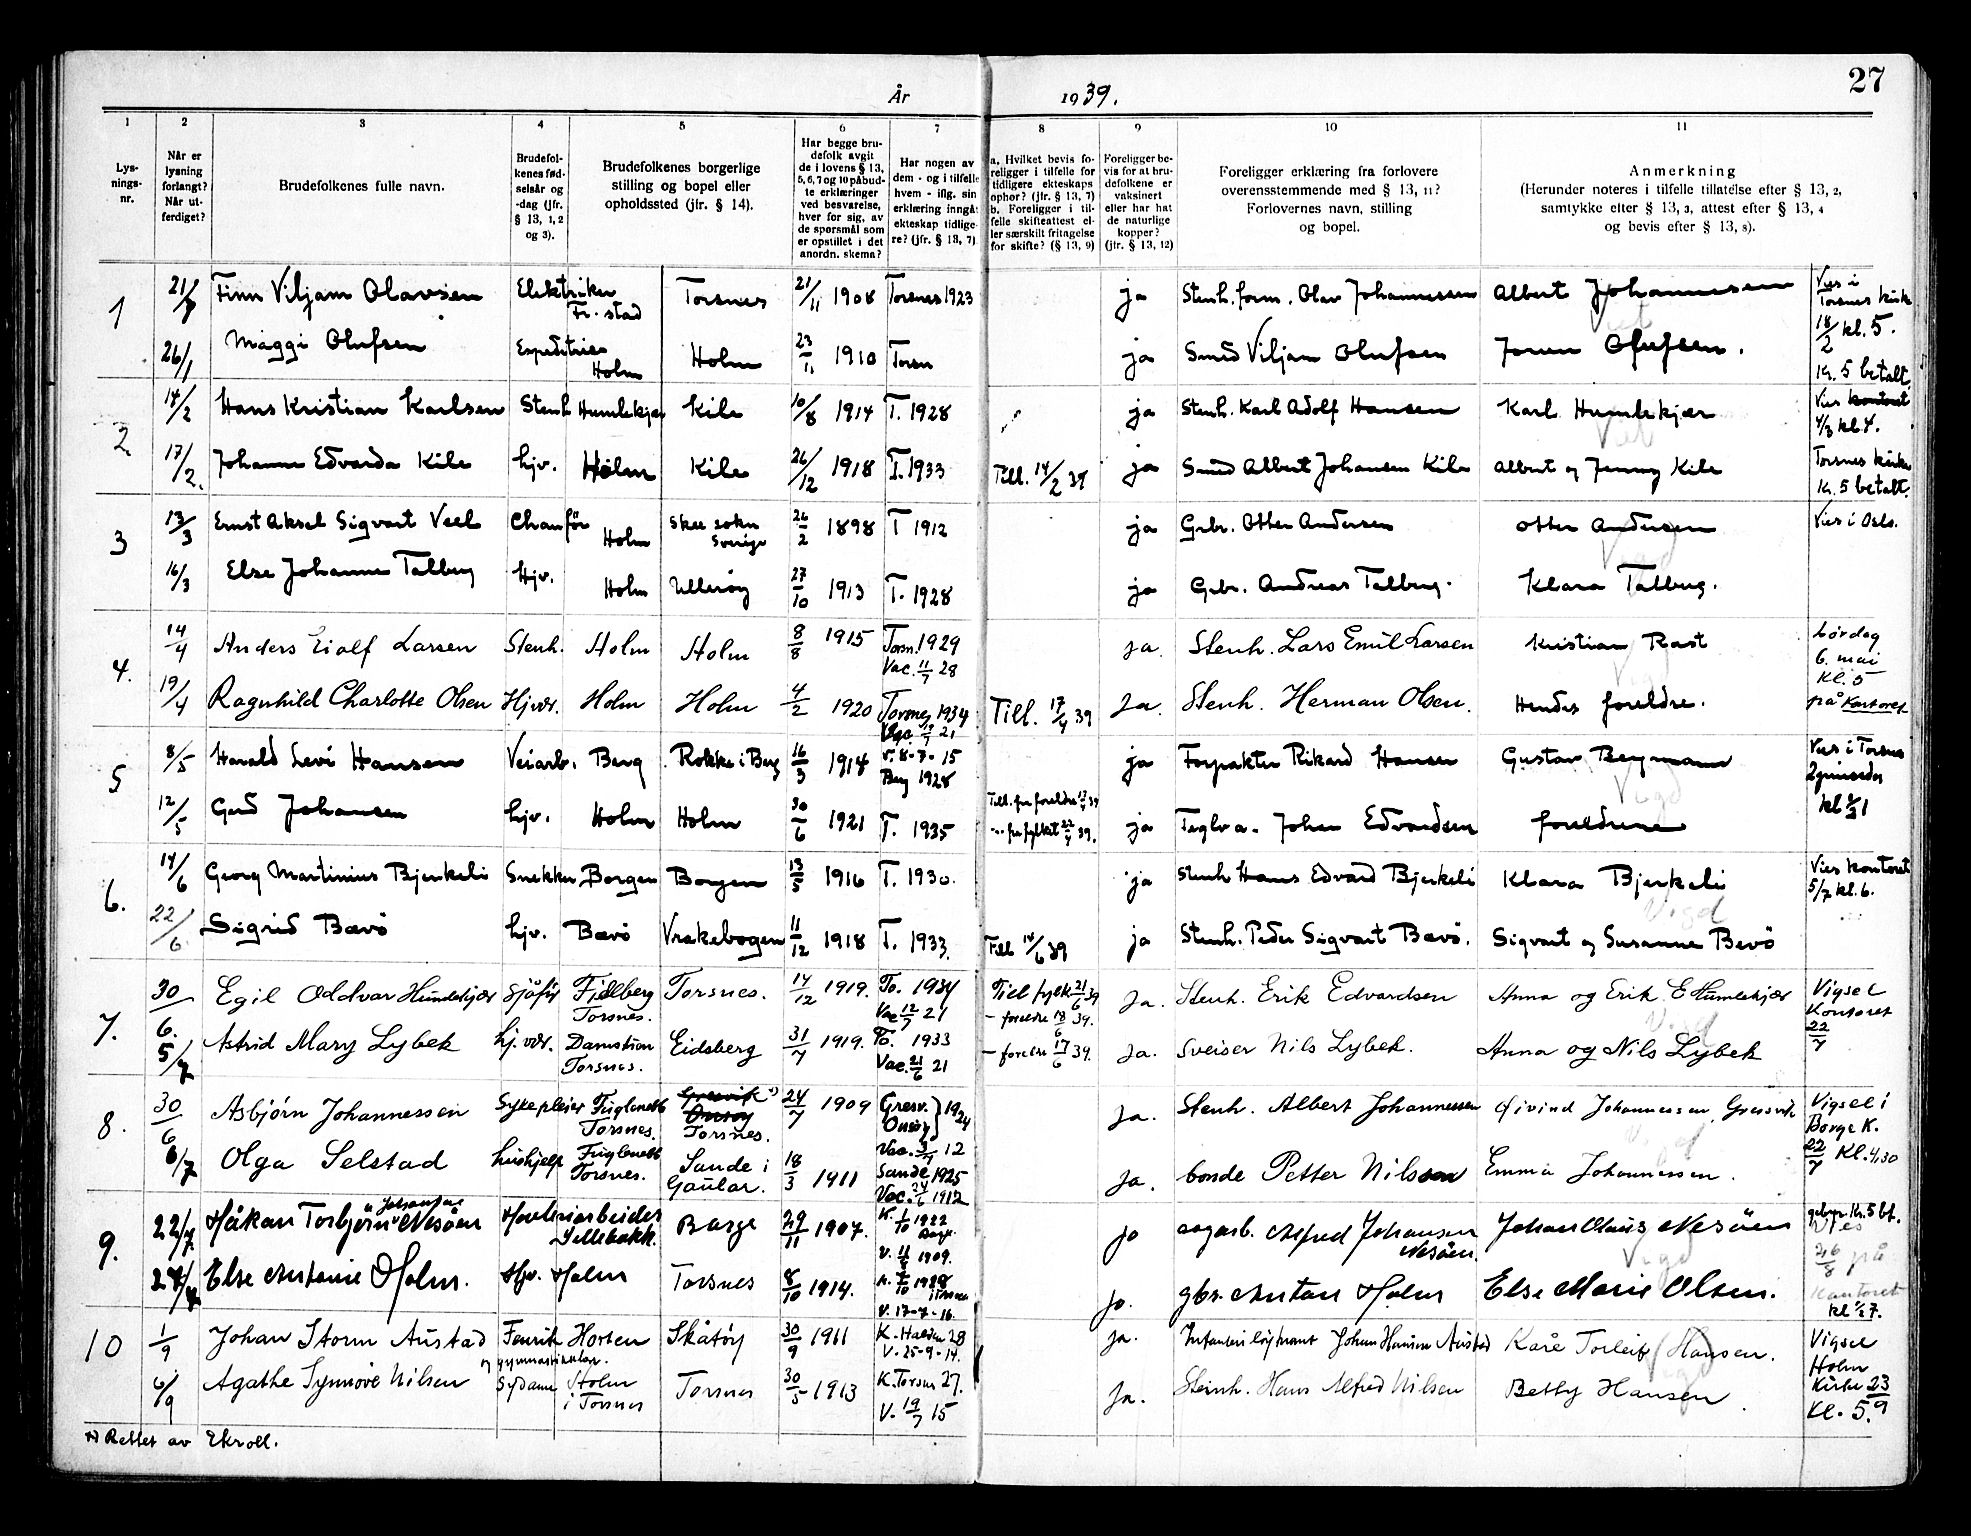 27
År 1939.
1 2 3 4 5 6 7 8 9 10 11
Lys-
nings-
nr.
Når er
lysning
forlangt?
Når ut-
ferdiget?
Brudefolkenes fulle navn.
Brudefol-
kenes fød-
selsår og
-dag (jfr.
§ 13, 1, 2
og 3).
Brudefolkenes borgerlige
stilling og bopel eller
opholdssted (jfr. § 14).
Har begge bru-
defolk avgit
de i lovens § 13,
5, 6, 7 og 10 påbud-
te erklæringer
ved besvarelse,
hver for sig, av
de spørsmål som
er opstillet i det
anordn. skema?
Har nogen av
dem - og i tilfelle
hvem - iflg. sin
erklæring inngå
ekteskap tidlige-
re? (jfr. § 13, 7)
a. Hvilket bevis fo-
religger i tilfelle for
tidligere ekteskaps
ophør? (jfr. § 13, 7)
b. Foreligger i til-
felle skifteattest el-
ler særskilt fritagelse
for skifte? (§ 13, 9)
Foreligger be-
vis for at bru-
defolkene er
vaksinert
eller har hat
de naturlige
kopper?
(jfr. § 13, 12)
Foreligger erklæring fra forlovere
overensstemmende med § 13, 11?
Forlovernes navn, stilling
og bopel.
Anmerkning
(Herunder noteres i tilfelle tillatelse efter § 13, 2,
samtykke efter § 13, 3, attest efter § 13, 4
og bevis efter § 13, 8).
1 Finn Viljam Olavsen Elektriker Fr.stad Torsnes 21/11 1908 Torsnes 1923 ja Stenh. form. Olav Johannessen Albert Johannessen Vies i Torsnes kirke
26/1 Maggi Olufsen Holm Holm 23/11 1910 Torsn ja Smed Viljam Olufsen Olufsen. 18/2 kl. 5. Kr. 5 betalt
2 14/2 Hans Kristian Karlsen Stenh Humlekjær Kile 10/8 1914 T. 1928 ja Stenh. Karl Adolf Hansen Karl Humlekjær Vies kontoret 4/3 kl. 4.
17/2. Johanne Edvarda Kile hjv. Holm Kile 26/12 1918 T. 1933 Till. 14/2 39 ja Smed Albert Johansen Kile Albert og Jenny Kile Torsnes kirke Kr. 5 betalt.
3 13/3 Ernst Aksel Sigvart Veel Chauffør Holm Skee sokn Sverige 26/2 1898 T 1912 ja Grbr. Otter Andersen Otter Andersen Vies i Oslo.
16/3 Else Johanne Talberg Hjv. Holm Ullerøy 27/10 1913 T. 1928 ja Grbr. Andreas Talberg. Klara Talberg.
4. 14/4 Anders Eiolf Larsen Stenh. Holm Holm 8/8 1915 Torsn. 1929 Vac. 11/7 28 ja. Stenh. Lars Emil Larsen Kristian Rast Lørdag 6. mai Kl. 5
19/4 Ragnhild Charlotte Olsen Hjvær. Holm Holm 4/2 1920 Torsnes 1934 Till. 17/4 39 Ja. Stenh. Herman Olsen. Hendes foreldre. på Kontoret
5 8/5 Harald Levi Hansen Veiarb. Berg Rokke i Berg 16/3 1914 V. 8-7-15 Berg 1928 ja Forpakter Rikard Hansen Gustav Bergmann Vies i Torsnes 2 pinsedag
12/5 Gerd Johansen hjv. Holm Holm 30/6 1921 T. 1935 Till. fra foreldre 39 - fra fylket 22/4 39. ja Teglv a. Johan Edvardsen foreldrene
6. 14/6 Georg Martinius Bjerkeli Snekker Borgen Borgen 13/5 1916 T. 1930. ja Stenh Hans Edvard Bjerkeli Klara Bjerkeli Vies kontoret 5/7 kl. 6.
22/6. Sigrid Bævø hjv. Bævø Vrakebogen 11/12 1918 T. 1933. Till 14/6 39 ja Stenh. Peder Sigvart Bævø. Sigvart og Susanne Bevø
7. 30/6. Egil Oddvar Humlekjær Sjåfør Fjellberg Torsnes. Torsnes. 14/12 1919. To. 1934 Vac 12/7 21 Till fylk 21/6 39 - foreldre 18/6 39. Ja. Stenh. Erik Edvardsen Anna og Erik E Humlekjær Vigsel Kontoret 22/7
5/7 Astrid Mary Lybek hj. vær. Torsnes. Eidsberg 31/7 1919. To. 1933 Vac. 21/6 21 - forelre 17/6 39. Ja. Sveiser Nils Lybek. Anna og Nils Lybek
8. 30/6 Asbjørn Johannessen Sykepleier Fuglenebb Torsnes. Gresvik x) Onsøy Torsnes. 24/7 1909 Gresv. Onsøy 1924 Vac. 3/7 12 Ja. Stenh. Albert Johannessen Øivind Johannessen, Gressvik Vigsel i Borge K.
6/7 Olga Selstad hushjelp Fuglenebb Torsnes. Sande i Gaular. 18/3 1911 Sande 1925 Vac. 24/6 1912 Ja. bonde Petter Nilsson Emma Johannessen. 22/7 Kl. 4,30
9. 22/7. Håkan Torbjørn Johansen Nesøen Hvaleriarbeider Sellebakk. Borge 29/11 1907. K. 1/10 1922 Borge. V. 11/6 1909. ja sagarb. Alfred Johansen Nesøen. Johan Olaus Nesøen gebyr Kr. 5 bt. Vies 26/8 på
27/7 Else Antonie Holm. Hjv. Holm Torsnes 8/10 1914. K. 7/10 1928 i Torsnes V. 17-7-16. ja. gbr. Anton Holm Else Marie Olsen. kontoret kl ½ 7.
10 1/9 Johan Storm Austad Fenrik Horten Skåtøy 30/9 1911 K. Halden 28 V. 25-9-14. ja. Johan Hansen Austad Kåre Torleif Hansen. Vigsel Holm
6/9 Agathe Synnøve Nilsen Sydame Holm i Torsnes Torsnes 30/5 1913 K. Torsnes 27. V. 19/7 15 Ja. Steinh. Hans Alfred Nilsen Betty Hansen Kirke 23/9 Kl. 5.
x) Rettet av Ekroll.